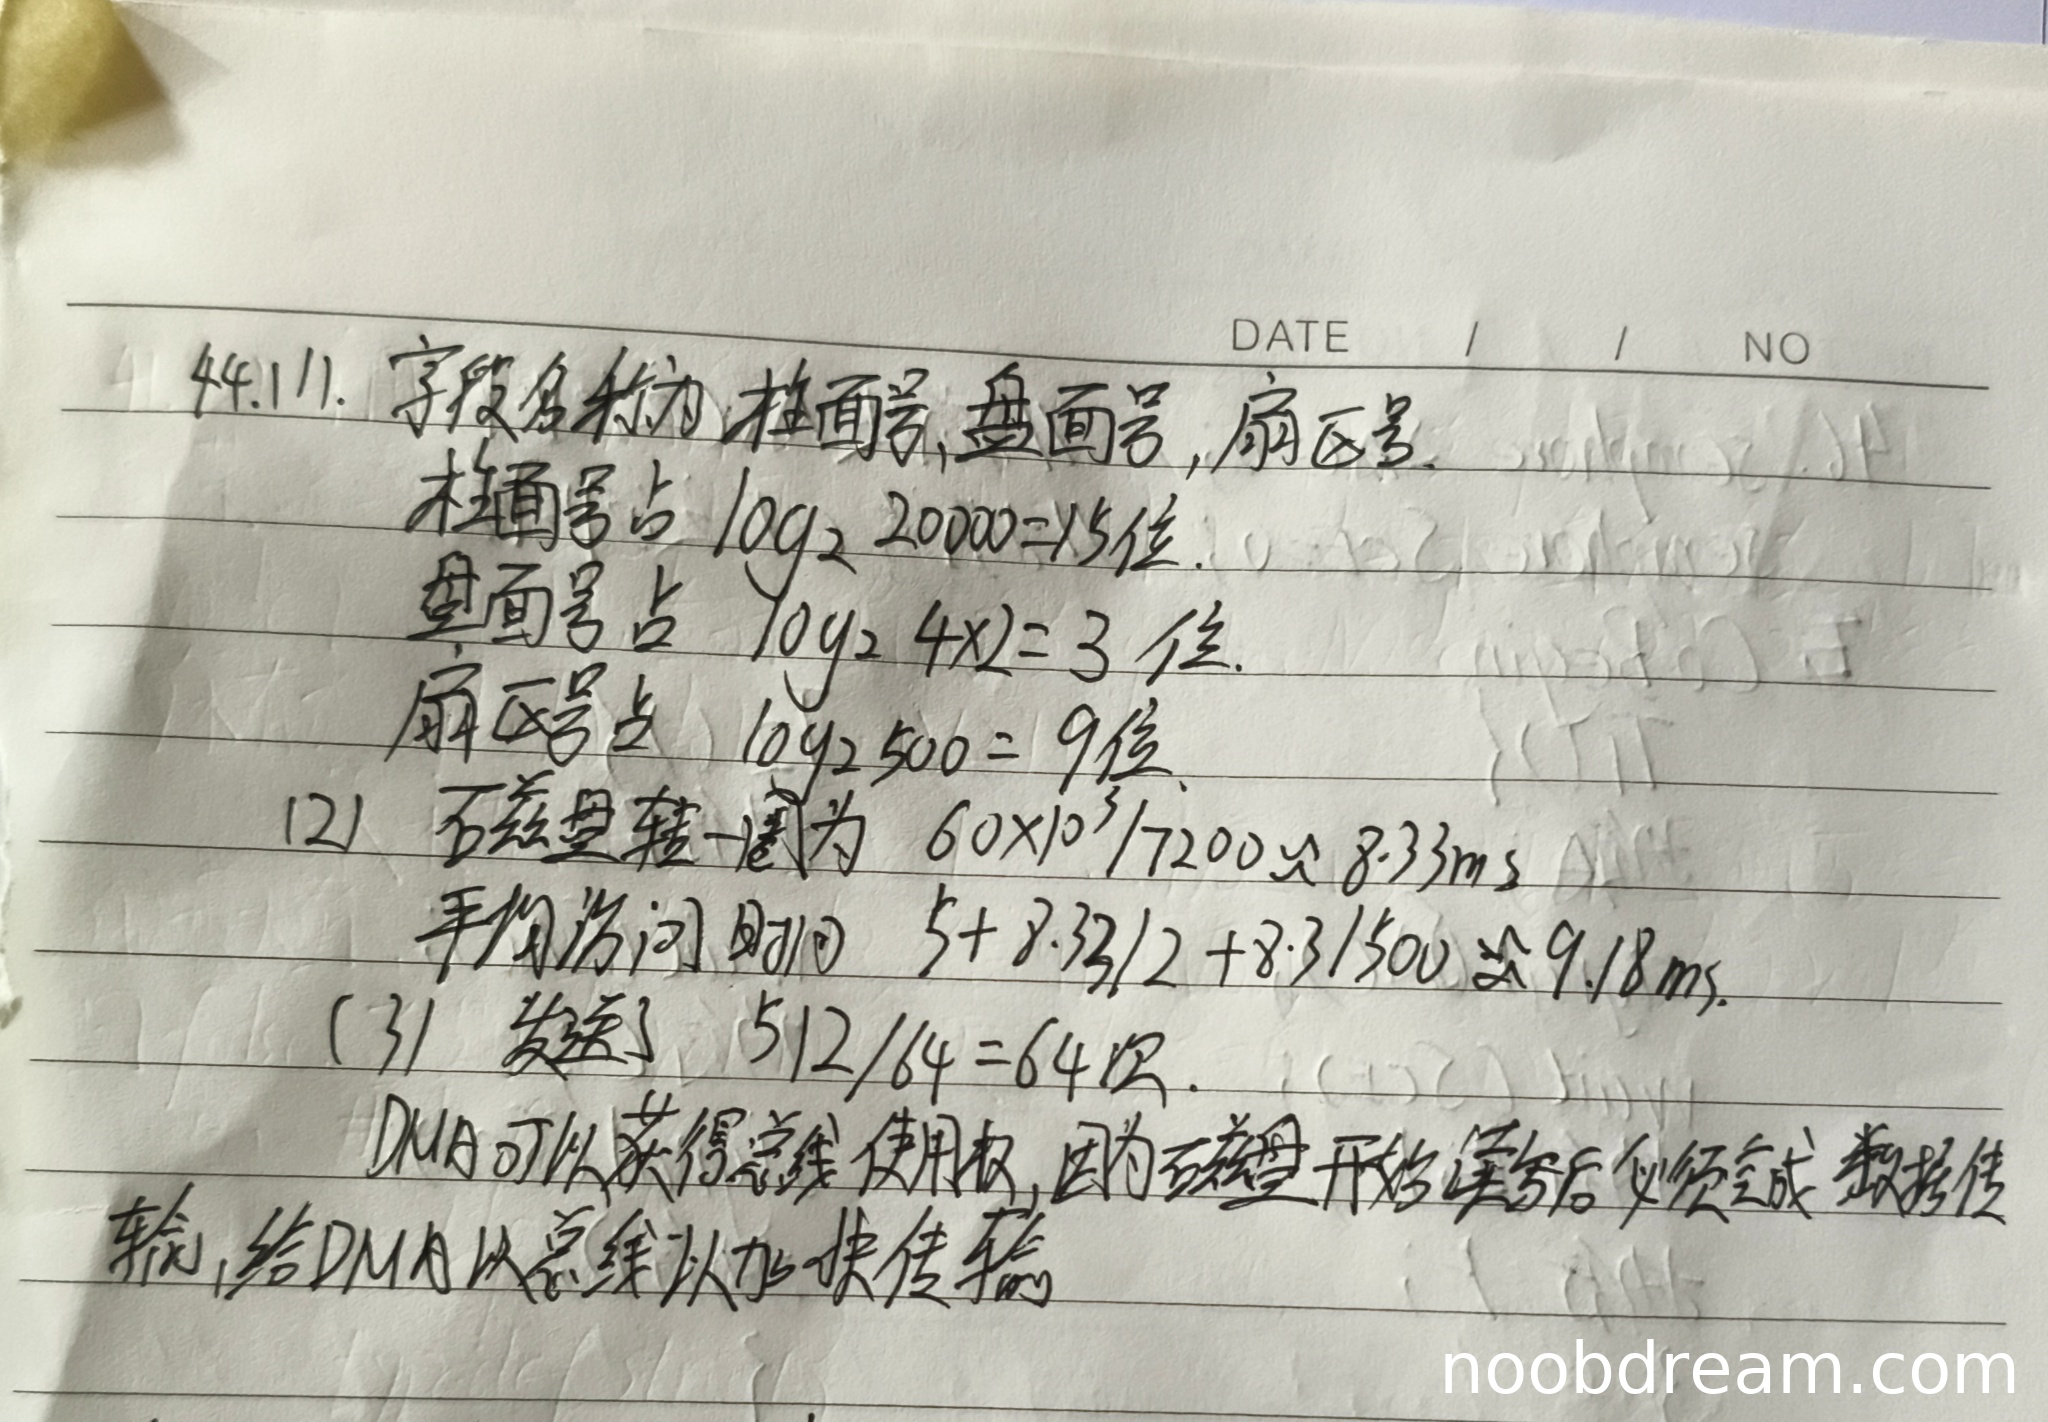 DATE / / NO
44.(1). 字段名称为 柱面号,盘面号,扇区号.
柱面号占 log₂ 20000=15位.
盘面号占 log₂ 4×2= 3 位.
扇区号占 log₂500 = 9位.
(2) 磁盘转一圈为 60×10³/7200≈8.33ms
平均访问时间 5+8.33/2+8.3/500≈9.18ms.
(3) 发送了 512/64=64次.
DMA可以获得总线使用权,因为磁盘开始读写后必须完成数据传
输,给DMA以总线以加快传输
noobdream.com